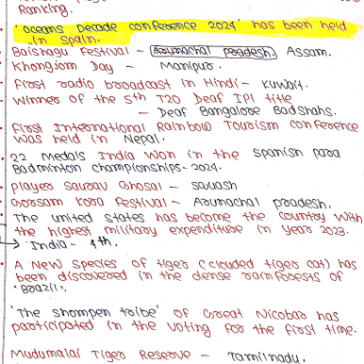 Ranking.
'Oceans Decade conference 2024' has been held
in Spain.
Baishagu Festival - Arunachal pradesh. Assam.
Khongjom Day - Manipur.
First radio broadcast in Hindi - Kuwait.
Winner of the 5th T20 Deaf IPL title
- Deaf Bangalore Badshahs.
First International Rainbow Tourism conference
was held in Nepal.
22 Medals India won in the Spanish para
Badminton championships - 2024.
Player Saurav Ghosal - Squash
Gorsam Kora Festival - Arunachal pradesh.
The united states has become the country with
the highest military expenditure in year 2023.
India - 4th.
A New species of tiger (clouded tiger cat) has
been discovered in the dense rainforests of
'Brazil'.
'The shompen tribe' of Great Nicobar has
participated in the voting for the first time.
Mudumalai Tiger Reserve - Tamilnadu.